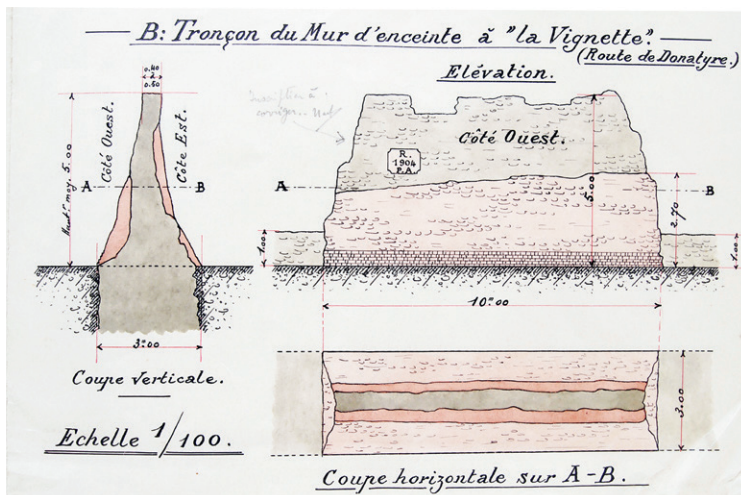 B: Tronçon du Mur d'enceinte à "la Vignette".
(Route de Donatyre.)
Elévation.
0.40
à
0.60
Côté Ouest.
Côté Est.
Haut.r moy. 5.00
A
B
3m00
Coupe verticale.
Echelle 1/100.
Côté Ouest.
R.
1904
F.A.
A
B
5.00
2.70
1.00
1.00
10m00
3.00
Coupe horizontale sur A-B.